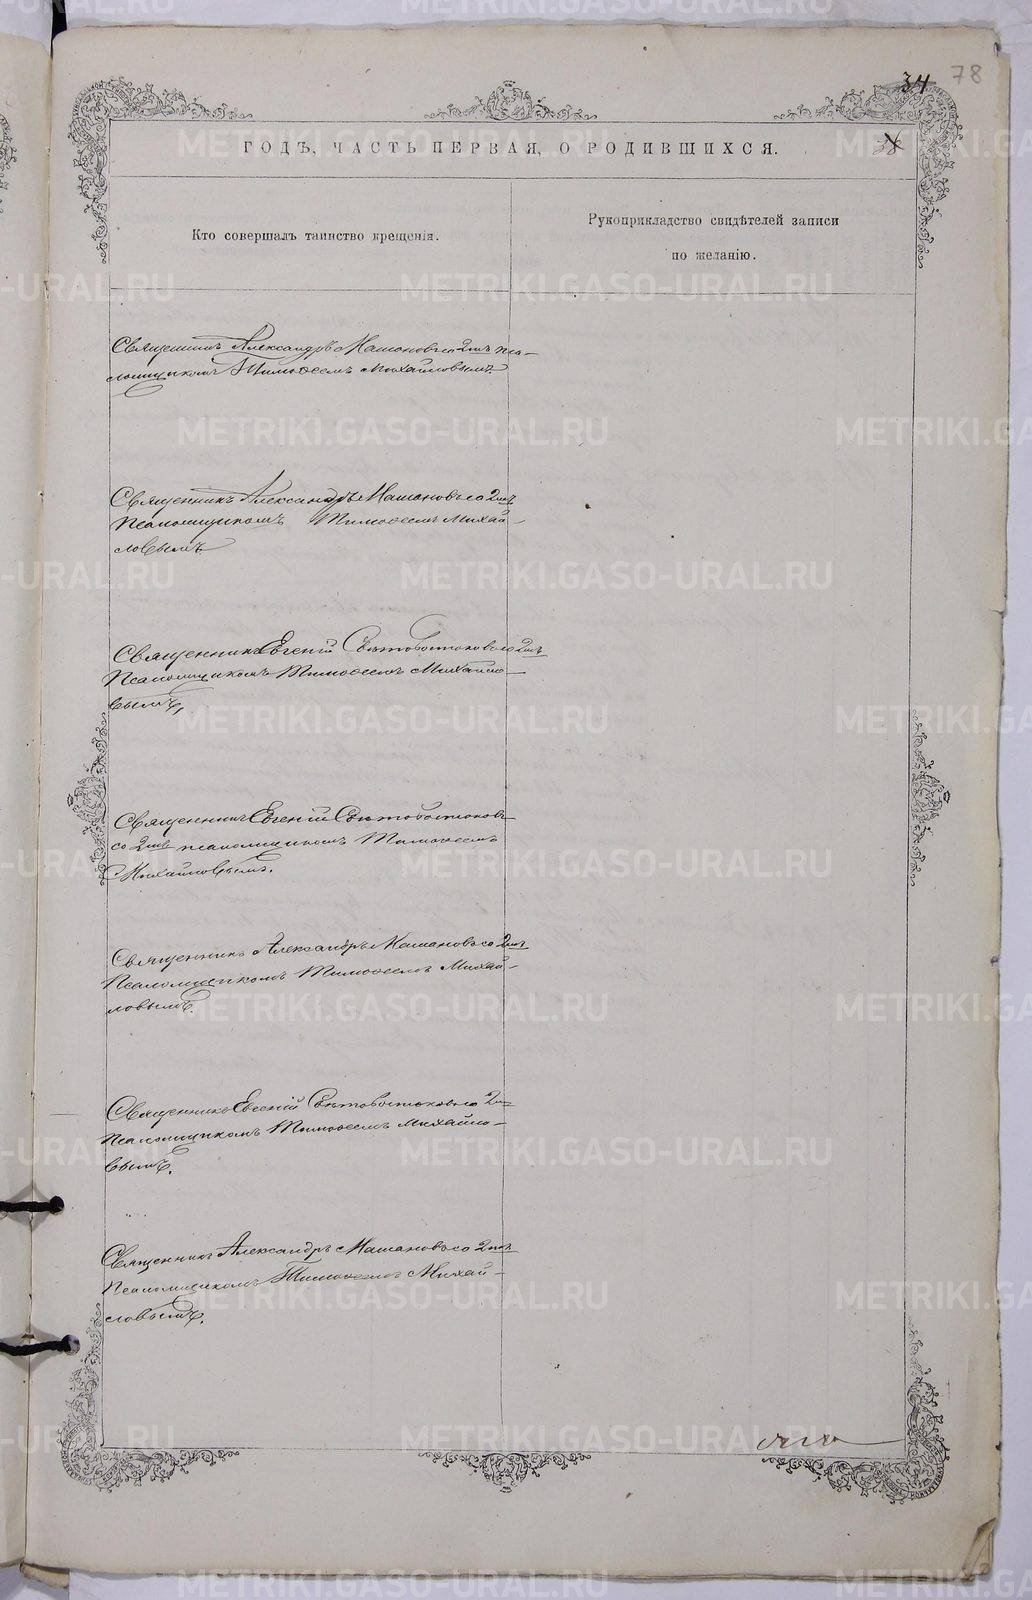 34 78
ГОДЪ, ЧАСТЬ ПЕРВАЯ, О РОДИВШИХСЯ.
38
Кто совершалъ таинство крещенія.
Рукоприкладство свидѣтелей записи
по желанію.
Священникъ Александръ Машановъ со 2мъ пса-
ломщикомъ Тимофеемъ Михайловымъ.
Священникъ Александръ Машановъ со 2мъ
Псаломщикомъ Тимофеемъ Михай-
ловымъ.
Священникъ Евгеній Свѣтовостоковъ со 2мъ
Псаломщикомъ Тимофеемъ Михайло-
вымъ,
Священникъ Евгеній Свѣтовостоковъ
со 2мъ псаломщикомъ Тимофеемъ
Михайловымъ.
Священникъ Александръ Машановъ со 2мъ
Псаломщикомъ Тимофеемъ Михай-
ловымъ.
Священникъ Евгеній Свѣтовостоковъ со 2мъ
Псаломщикомъ Тимофеемъ Михайло-
вымъ.
Священникъ Александръ Машановъ со 2мъ
Псаломщикомъ Тимофеемъ Михай-
ловымъ.
METRIKI.GASO-URAL.RU